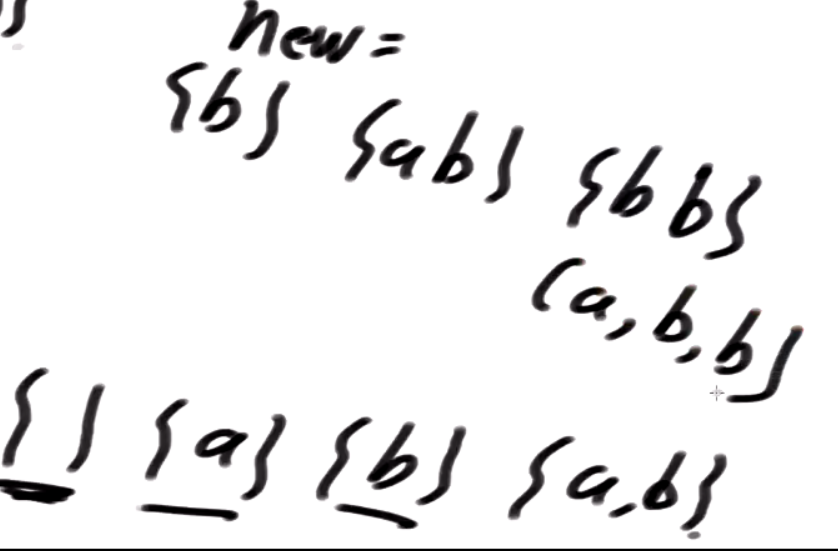 new =
{b} {ab} {bb}
(a, b, b}
{ } {a} {b} {a,b}